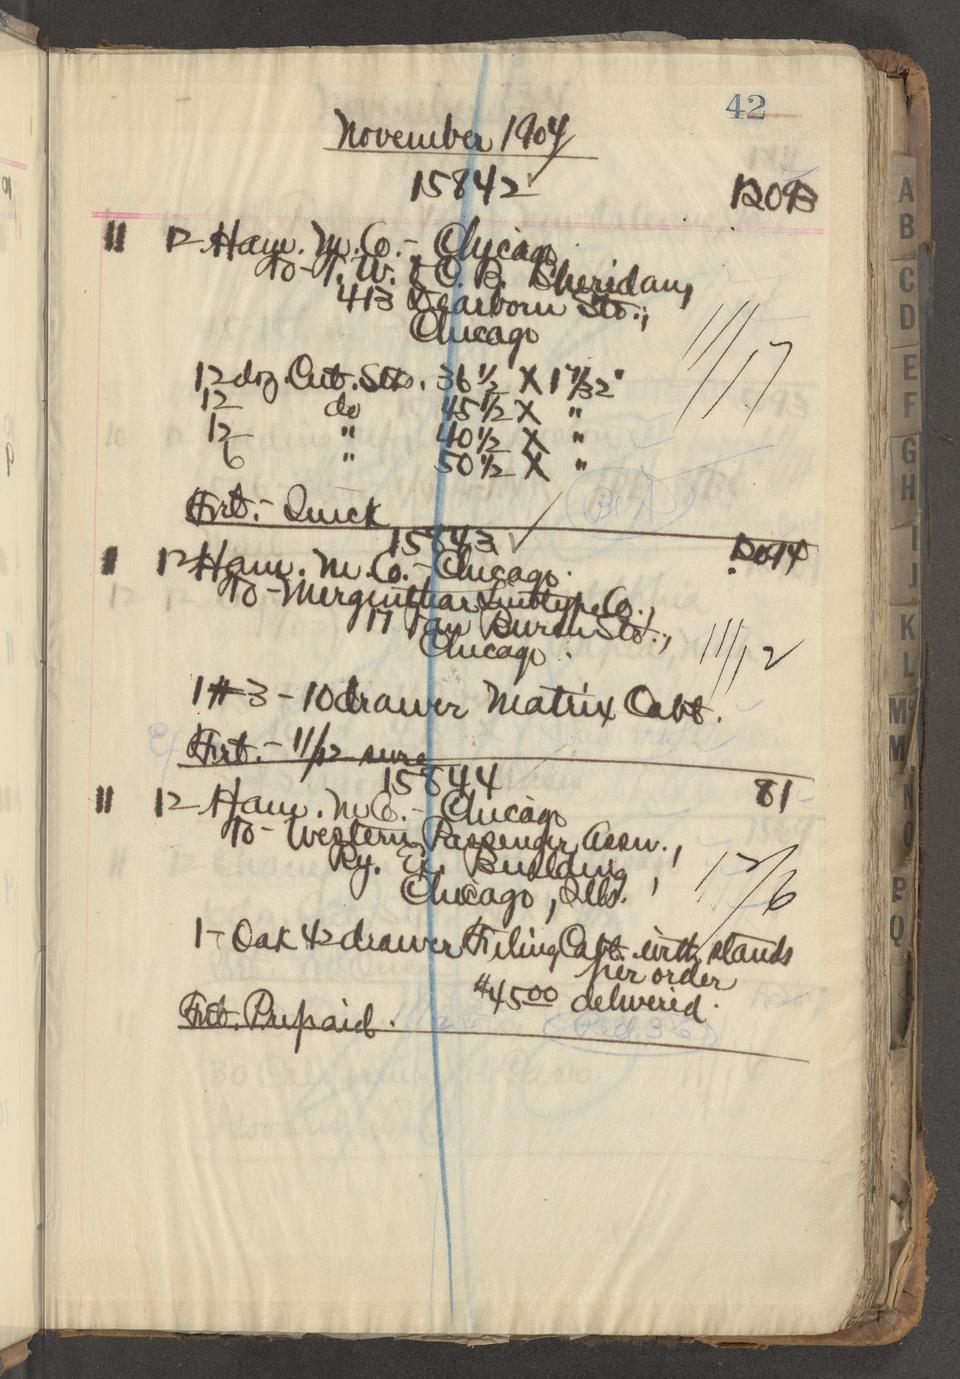 42
November 1904
15842 ✓ 12093
11 12 Ham. M. Co. - Chicago
To - T. W. & C. B. Sheridan,
413 Dearborn Str.,
Chicago
11/17
12 doz. Cut. Stks. 36 1/2 X 1 7/32"
12 do 45 1/2 X "
12 " 40 1/2 X "
6 " 50 1/2 X "
Frt. - Quick
15843 ✓ 12094
11 12 Ham. M. Co. - Chicago
To - Mergenthaler Linotype Co.,
17 Van Buren St.,
Chicago
11/12
1 #3 - 10 drawer Matrix Cabt.
Frt. - 11/12 sure
15844 81
11 12 Ham. M. Co. - Chicago
To - Western Passenger Assn.,
Ry. Ex. Building,
Chicago, Ills.
12/6
1 - Oak 42 drawer Filing Cabt. with stands
per order
$45.00 delivered.
Frt. Prepaid.
A
B
C
D
E
F
G
H
I
J
K
L
M
M
N
O
P
Q